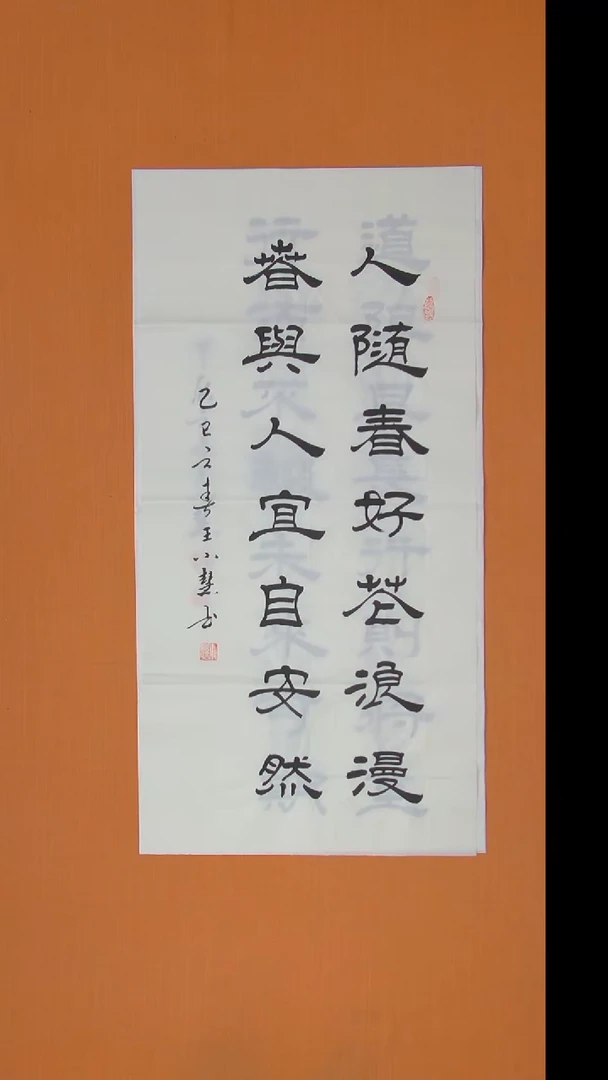 人隨春好花浪漫
萅與人宜自安然
乙巳之春王小慧书